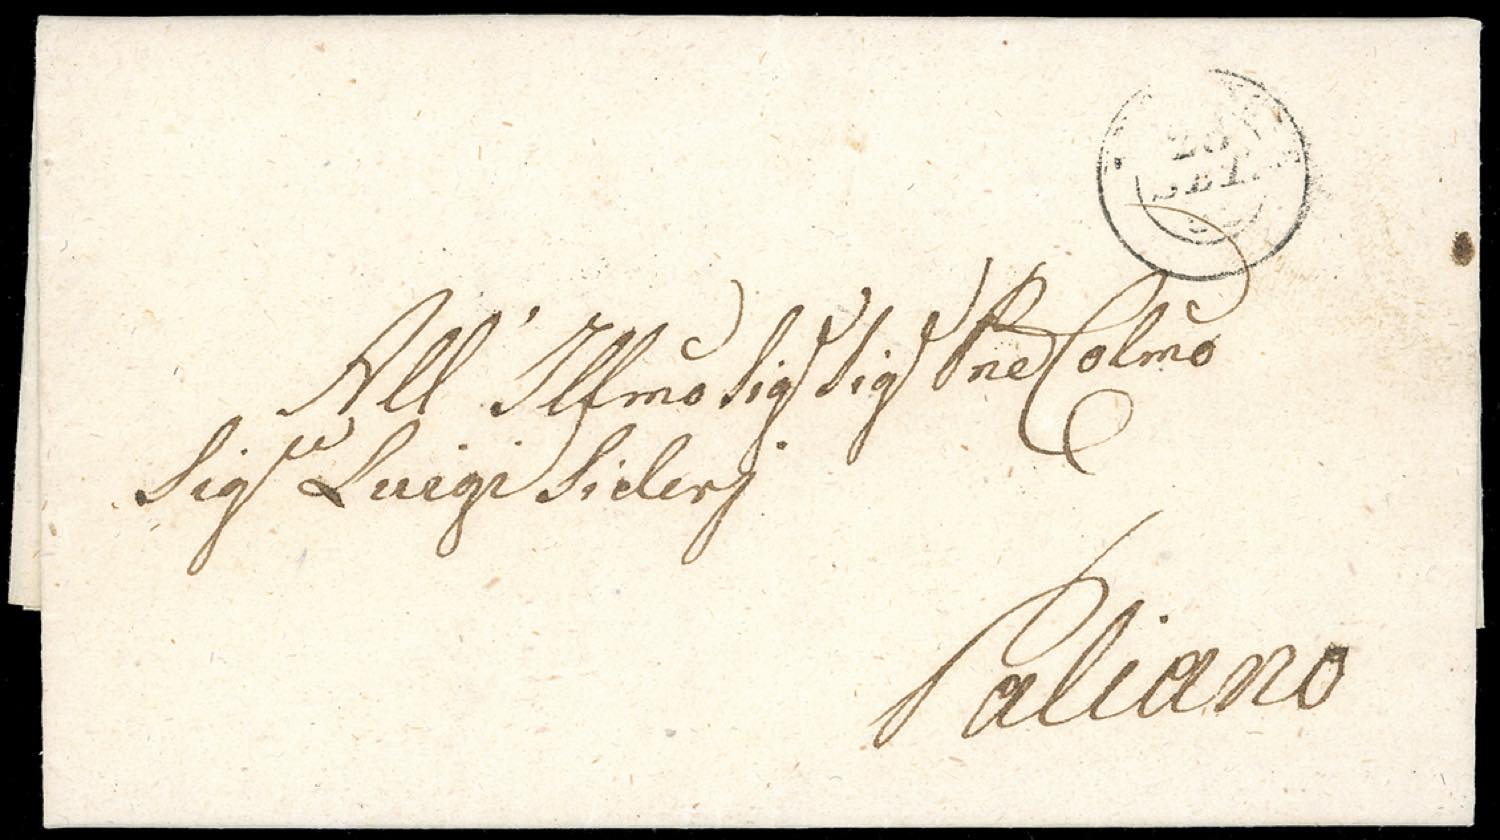 SET.
All' Illmo Sigr Sigr Pne Colmo
Sigr Luigi Siderj
Paliano